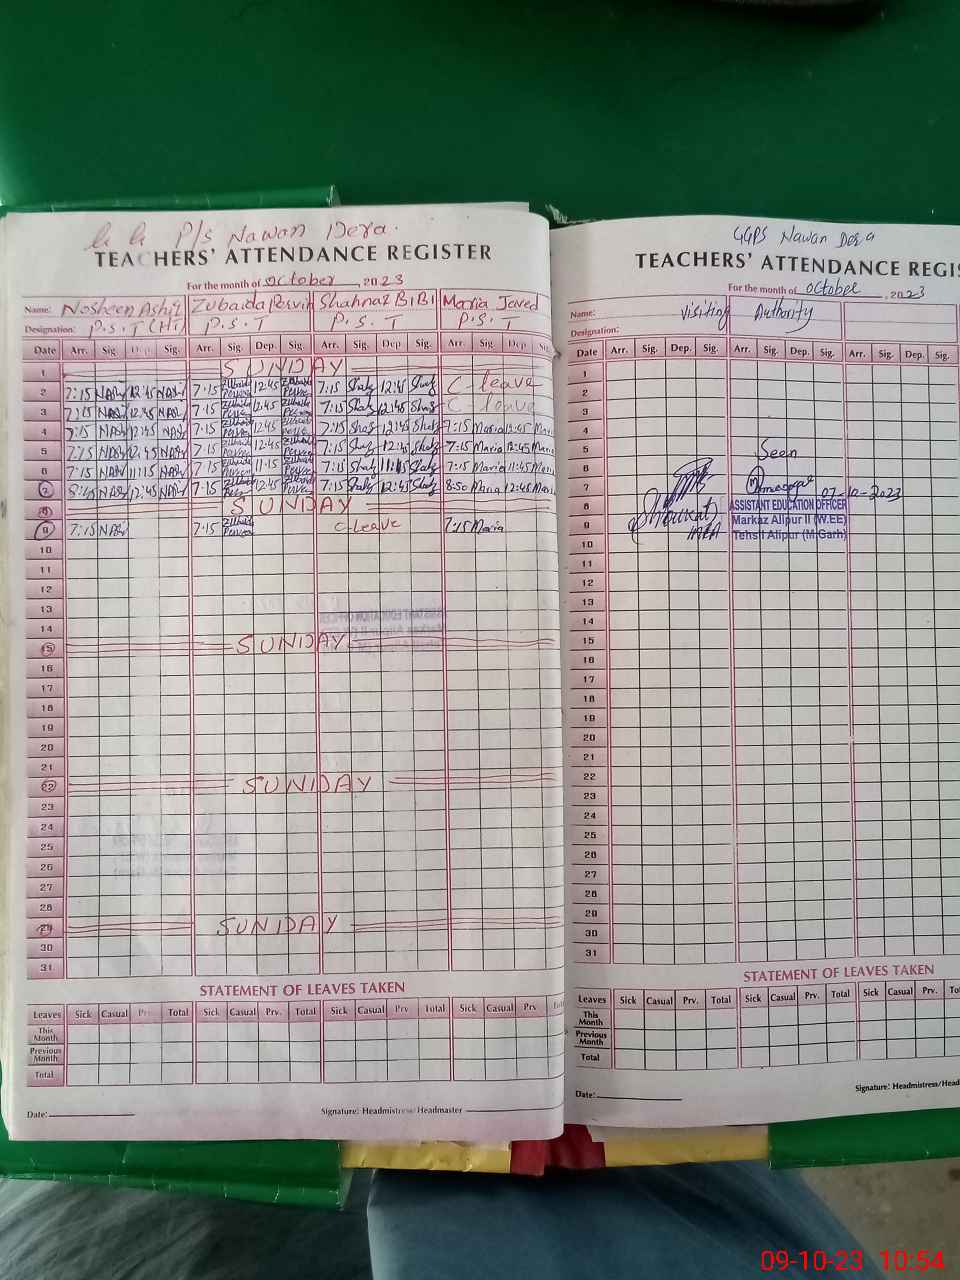 G G P/S Nawan Dera.
TEACHERS' ATTENDANCE REGISTER
For the month of October, 2023
Name: Nosheen Ashiq Zubaida Pervin Shahnaz BIBI Maria Javed
Designation: P.S.T (HT) P.S.T P.S.T P.S.T
Date Arr. Sig. Dep. Sig. Arr. Sig. Dep. Sig. Arr. Sig. Dep. Sig. Arr. Sig. Dep. Sig.
1 SUNDAY
2 7:15 12:45 7:15 12:45 7:15 Shah 12:45 Shah C-leave
3 7:15 12:45 7:15 12:45 7:15 Shah 12:45 Shah C-leave
4 7:15 12:45 7:15 12:45 7:15 Shah 12:45 Shah 7:15 Maria 12:45 Maria
5 7:15 12:45 7:15 12:45 7:15 Shah 12:45 Shah 7:15 Maria 12:45 Maria
6 7:15 11:15 7:15 11:15 7:15 Shah 11:15 Shah 7:15 Maria 11:45 Maria
7 8:45 12:45 7:15 12:45 7:15 Shah 12:45 Shah 8:50 Maria 12:45 Maria
8 SUNDAY
9 7:15 7:15 C-leave 7:15 Maria
10
11
12
13
14
15 SUNDAY
16
17
18
19
20
21
22 SUNDAY
23
24
25
26
27
28
29 SUNDAY
30
31
STATEMENT OF LEAVES TAKEN
Leaves Sick Casual Prv. Total Sick Casual Prv. Total Sick Casual Prv. Total Sick Casual Prv.
This Month
Previous Month
Total
Date:
Signature: Headmistress/Headmaster
GGPS Nawan Dera
TEACHERS' ATTENDANCE REGIS
For the month of October, 2023
Name: Visiting Authority
Designation:
Date Arr. Sig. Dep. Sig. Arr. Sig. Dep. Sig. Arr. Sig. Dep. Sig.
1
2
3
4
5 Seen
6
7 07-10-2023
8 ASSISTANT EDUCATION OFFICER
9 Markaz Alipur II (W.EE)
10 Tehsil Alipur (M.Garh)
11
12
13
14
15
16
17
18
19
20
21
22
23
24
25
26
27
28
29
30
31
STATEMENT OF LEAVES TAKEN
Leaves Sick Casual Prv. Total Sick Casual Prv. Total Sick Casual Prv.
This Month
Previous Month
Total
Date:
Signature: Headmistress/Head
09-10-23 10:54